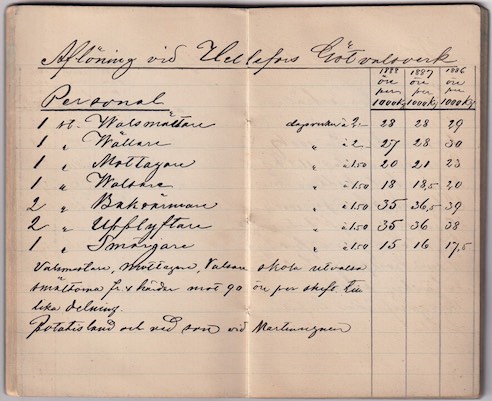 Aflöning vid Hellefors Götvalsverk
1888 1887 1886
öre öre öre
per per per
1000kg 1000kg 1000kg
Personal
1 st. Walsmästare dagsverke à 2,- 28 28 29
1 " Wällare " à 2,- 27 28 30
1 " Mottagare " à 1.50 20 21 23
1 " Walsare " à 1.50 18 18,5 20
2 " Bakvärmare " à 1.50 35 36,5 39
2 " Upplyftare " à 1.50 35 36 38
1 " Smörjare " à 1.50 15 16 17,5
Valsmästare, Mottagare, Valsare skola utvalsa
småttorna fr. v härdar mot 90 öre per skift till
lika delning.
Potatisland och ved som vid Martinugnen